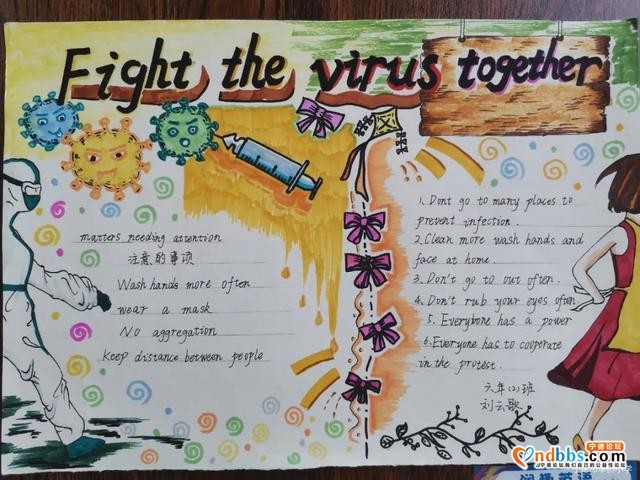 Fight the virus together
matters needing attention
注意的事项
Wash hands more often
wear a mask
No aggregation
Keep distance between people
1. Dont go to many places to
prevent infection.
2. Clean more wash hands and
face at home.
3. Don't go to out often.
4. Don't rub your eyes often
5. Everybone has a power
6. Everyone has to cooperate
in the protest.
六年(2)班
刘云歌
宁德论坛
ndbbs.com
宁德论坛,我们自己的公益性论坛